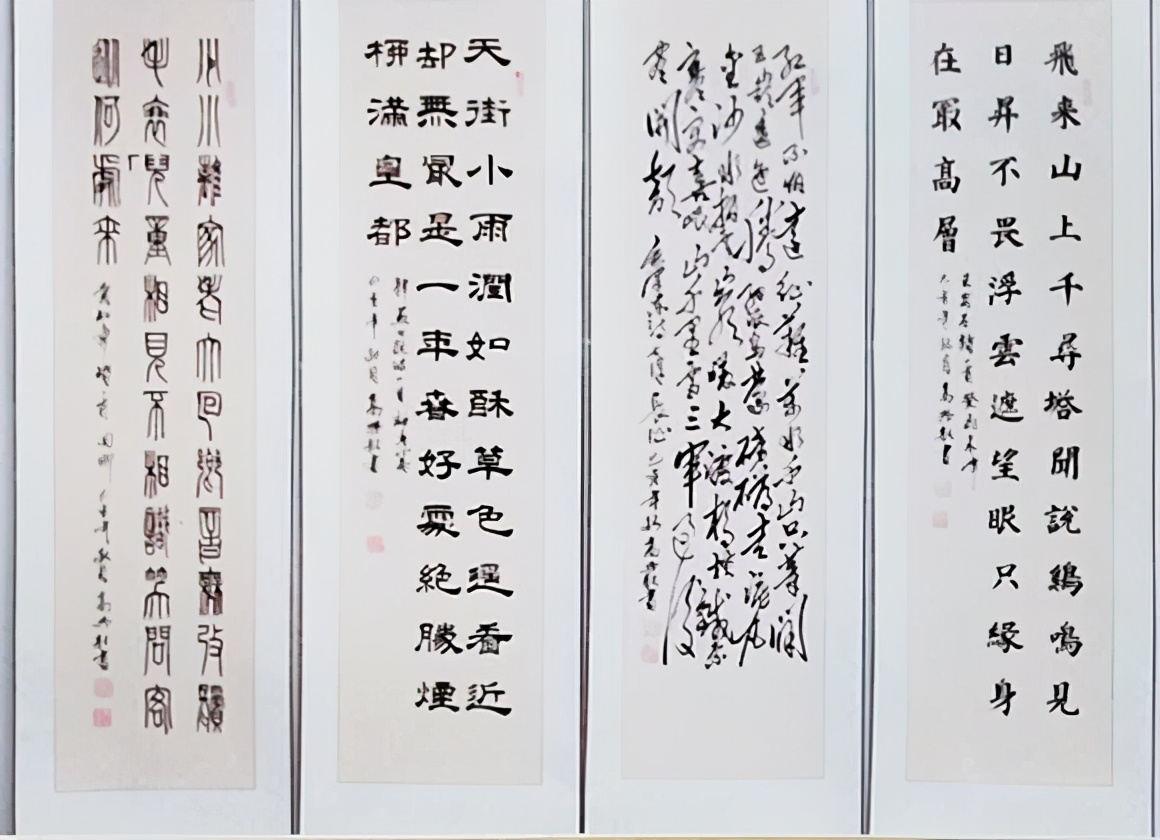 飛来山上千尋塔聞説鷄鳴見
日昇不畏浮雲遮望眼只緣身
在冣高層
紅軍不怕遠征難萬水千山只等閑
五嶺逶迤騰細浪烏蒙磅礴走泥丸
金沙水拍雲崖暖大渡橋横鐵索
寒更喜岷山千里雪三軍過後
盡開顔
天街小雨潤如酥草色遥看近
却無冣是一年春好處絶勝煙
柳滿皇都
少小離家老大回鄉音無改鬢
毛衰兒童相見不相識笑問客
從何處来